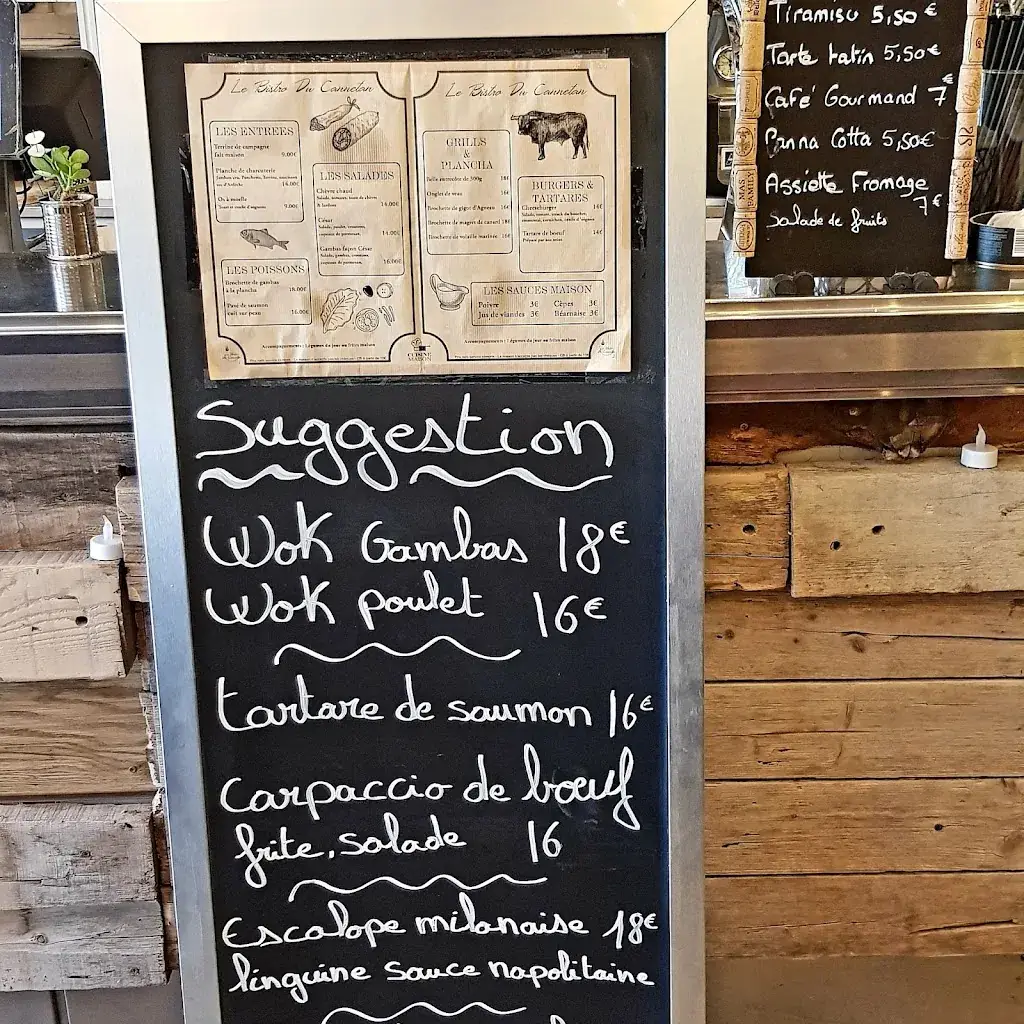 Le Bistro Du Cannelan
LES ENTREES
Terrine de campagne
fait maison 9.00€
Planche de charcuterie
14.00€
Os à moelle
9.00€
LES POISSONS
Brochette de gambas
à la plancha 18.00€
Pavé de saumon
cuit sur peau 16.00€
LES SALADES
Chèvre chaud
14.00€
César
14.00€
Gambas façon César
16.00€
Accompagnements : Légumes du jour ou frites maison
CUISINE
MAISON
Le Bistro Du Cannelan
GRILLS
&
PLANCHA
Belle entrecôte de 300g 18€
Onglet de veau
Brochette de gigot d'Agneau 16€
Brochette de magret de canard 18€
Brochette de volaille marinée 16€
BURGERS &
TARTARES
Cheeseburger 16€
Tartare de boeuf 16€
Préparé par nos soins
LES SAUCES MAISON
Poivre 3€ Cèpes 3€
Jus de viandes 3€ Béarnaise 3€
Accompagnements : Légumes du jour ou frites maison
Suggestion
Wok Gambas 18€
Wok poulet 16€
tartare de saumon 16€
Carpaccio de bœuf
frite, salade 16
Escalope milanaise 18€
linguine sauce napolitaine
Tiramisu 5,50€
Tarte tatin 5,50€
Café Gourmand 7€
Panna Cotta 5,50€
Assiette Fromage
7€
Salade de fruits